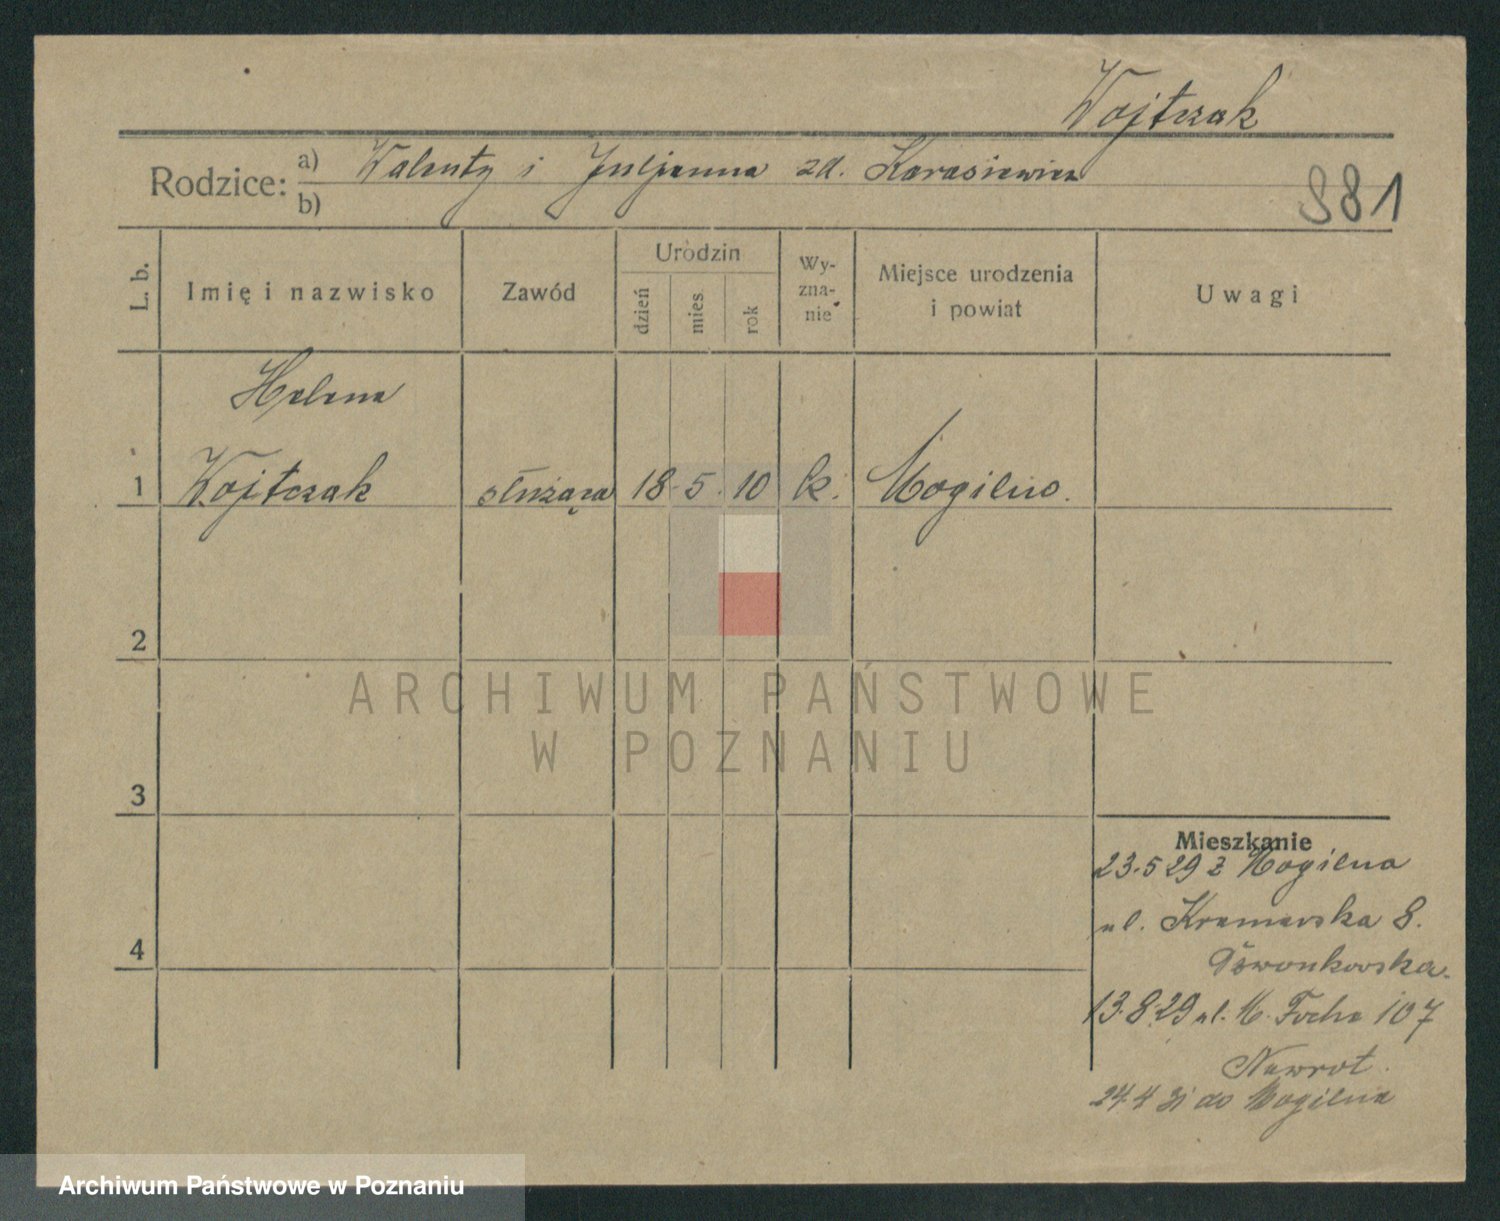 Wojtczak
Rodzice: a) Walenty i Juljanna zd. Karasiewicz
b)
881
L. b.
Imię i nazwisko
Zawód
Urodzin
dzień
mies
rok
Wy-
zna-
nie
Miejsce urodzenia
i powiat
Uwagi
Helena
1 Wojtczak służąca 18 5. 10 k. Mogilno.
2
ARCHIWUM PAŃSTWOWE
W POZNANIU
3
Mieszkanie
23.5 29 z Mogilna
ul. Kramarska 8.
4
13.8.29 ul. M. Focha 107
Nawrot.
24.4 31 do Mogilna
Archiwum Państwowe w Poznaniu